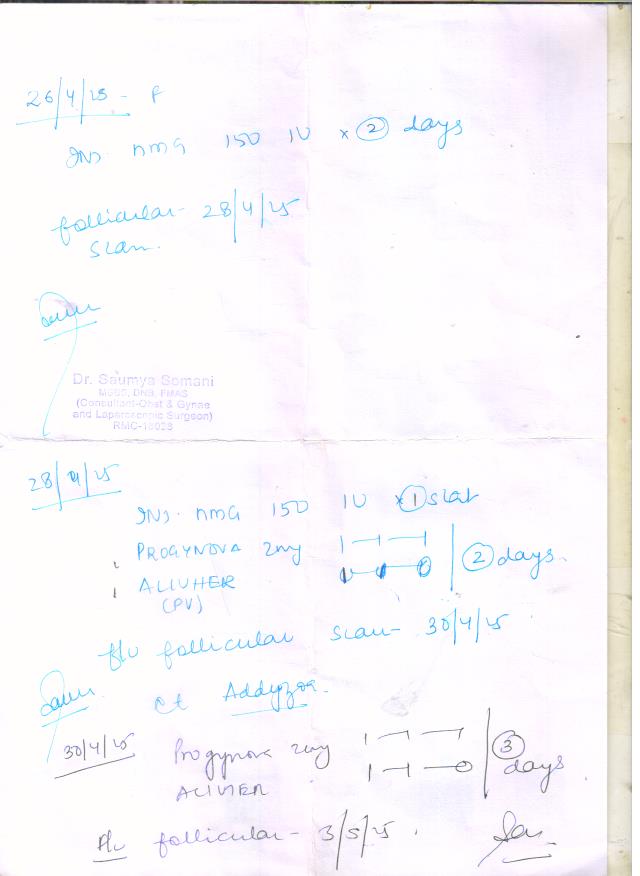 26/4/25 - F
INJ. HMG 150 IU x 2 days
follicular - 28/4/25
scan.
Dr. Saumya Somani
MBBS, DNB, FMAS
(Consultant-Obst & Gynae
and Laparoscopic Surgeon)
RMC-18028
28/4/25
INJ. HMG 150 IU x 1 stat
PROGYNOVA 2mg 1—1—1 2 days.
ALIVHER
(PV)
f/u follicular scan - 30/4/25
ct Addyzoa.
30/4/25 Progynova 2mg 1—1—1 3 days
ALIVHER 1—1—0
F/u follicular - 3/5/25.